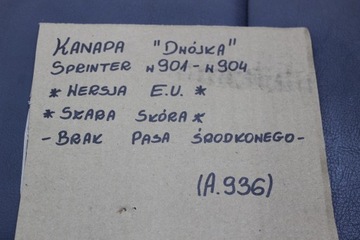 KANAPA "DWÓJKA"
SPRINTER W901-W904
* WERSJA E.U. *
* SKARA SKÓRA *
- BRAK PASA ŚRODKOWEGO -
(A.936)